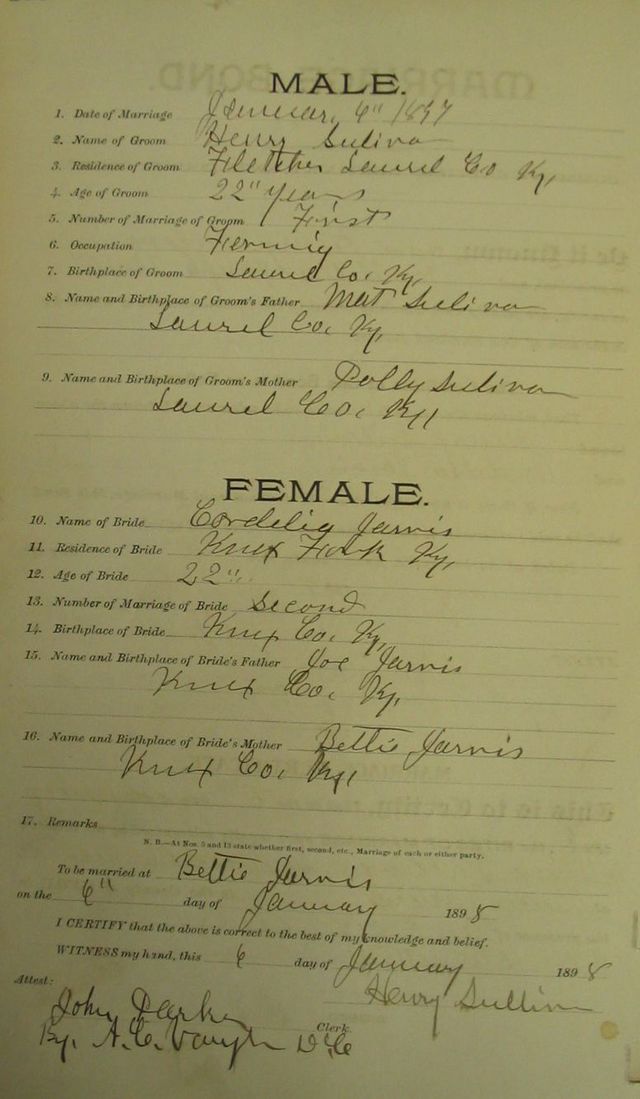 MALE.
1. Date of Marriage Januar, 6" 1897
2. Name of Groom Henry Suliva
3. Residence of Groom Fletcher Laurel Co Ky,
4. Age of Groom 22" years
5. Number of Marriage of Groom First
6. Occupation
7. Birthplace of Groom Laurel Co, Ky,
8. Name and Birthplace of Groom's Father Mat Sulivan
Laurel Co, Ky,
9. Name and Birthplace of Groom's Mother Polly Sulivan
Laurel Co, Ky,
FEMALE.
10. Name of Bride Cordelia Jarvis
11. Residence of Bride Knox Fork Ky,
12. Age of Bride 22"
13. Number of Marriage of Bride Second
14. Birthplace of Bride Knox Co, Ky,
15. Name and Birthplace of Bride's Father Joe Jarvis
Knox Co, Ky,
16. Name and Birthplace of Bride's Mother Bettie Jarvis
Knox Co, Ky,
17. Remarks
N. B.—At Nos. 5 and 13 state whether first, second, etc., Marriage of each or either party.
To be married at Bettie Jarvis
on the 6" day of January 1898
I CERTIFY that the above is correct to the best of my knowledge and belief.
WITNESS my hand, this 6 day of January 1898
Henry Sullivan
Attest:
John Parker Clerk
By, A. C. Vaughn D.C